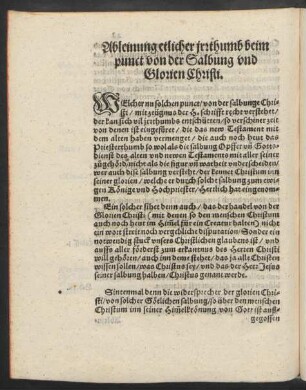 Ableinung etlicher jrthumb beim
punct von der Salbung vnd
Glorien Christi.
WElcher nu solchen punct / von der salbunge Chri-
sti / mit zeügnus der H. schrifft recht verstehet /
der kan sich vil jrrthumbs entschütten / so verschiner zeit
von denen ist eingefüret / die das new Testament mit
dem alten haben vermenget / die auch noch heut das
Priesterthumb so wol als die salbung Opffer vñ Gots-
dienst des alten vnd newen Testaments mit aller seiner
zůgehörd nicht als die figur vñ warheit vnderscheiden /
wer auch dise salbung versteht / der kennet Christum inn
seiner glorien / welche er durch solche salbung zum ewi-
gen Könige vnd Hochpriester / Herrlich hat eingenom-
men.
Ein solcher sihet denn auch / das der handel von der
Glorien Christi (mit deren so den menschen Christum
auch noch heut im Hiṁel für ein Creatur halten) nicht
ein wortstreit noch vergebliche disputation / Sonder ein
notwendig stuck vnsers Christlichen glaubens ist / vnd
auffs aller förderst zum erkantnus des Herren Christi
will gehören / auch inn deme stehet / das ja alle Christen
wissen sollen / was Christus sey / vnd das der Herr Jesus
seiner salbung halben / Christus genant werde.
Sintenmal denn die widersprecher der glorien Chri-
sti / von solcher Götlichen salbung / so über den menschen
Christum inn seiner Hiṁelkrönung von Gott ist auß-
gegossen